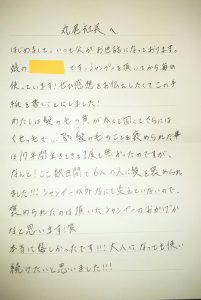 丸尾社長へ
はじめまして。いつも父がお世話になっております。
娘の です。シャンプーを頂いてから毎日
使っています！ぜひ感想をお伝えしたくてこの手
紙を書くことにしました！
わたしは髪の毛の質が 太くて固くてさらには
くせ毛で… 髪の毛のことを褒められた事
は17年間生きてきて1度も無かったのですが、
なんと！ここ数日間で6人の人に髪を褒められ
ました!!! シャンプー以外なにも変えていないので、
褒められたのは頂いたシャンプーのおかげだ
なと思います！笑
本当に嬉しかったです!!! 大人になっても使い
続けたいと思いました!!!